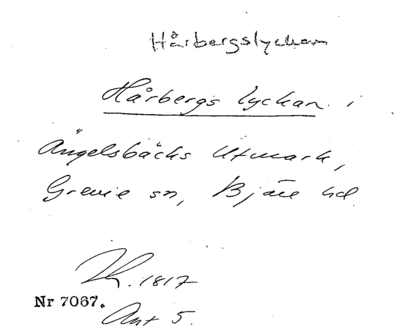 Hårbergslyckan
Hårbergs lyckan i
Ängelsbäcks Utmark,
Grevie sn, Bjäre hd
1817
Nr 7067.
Akt 5.